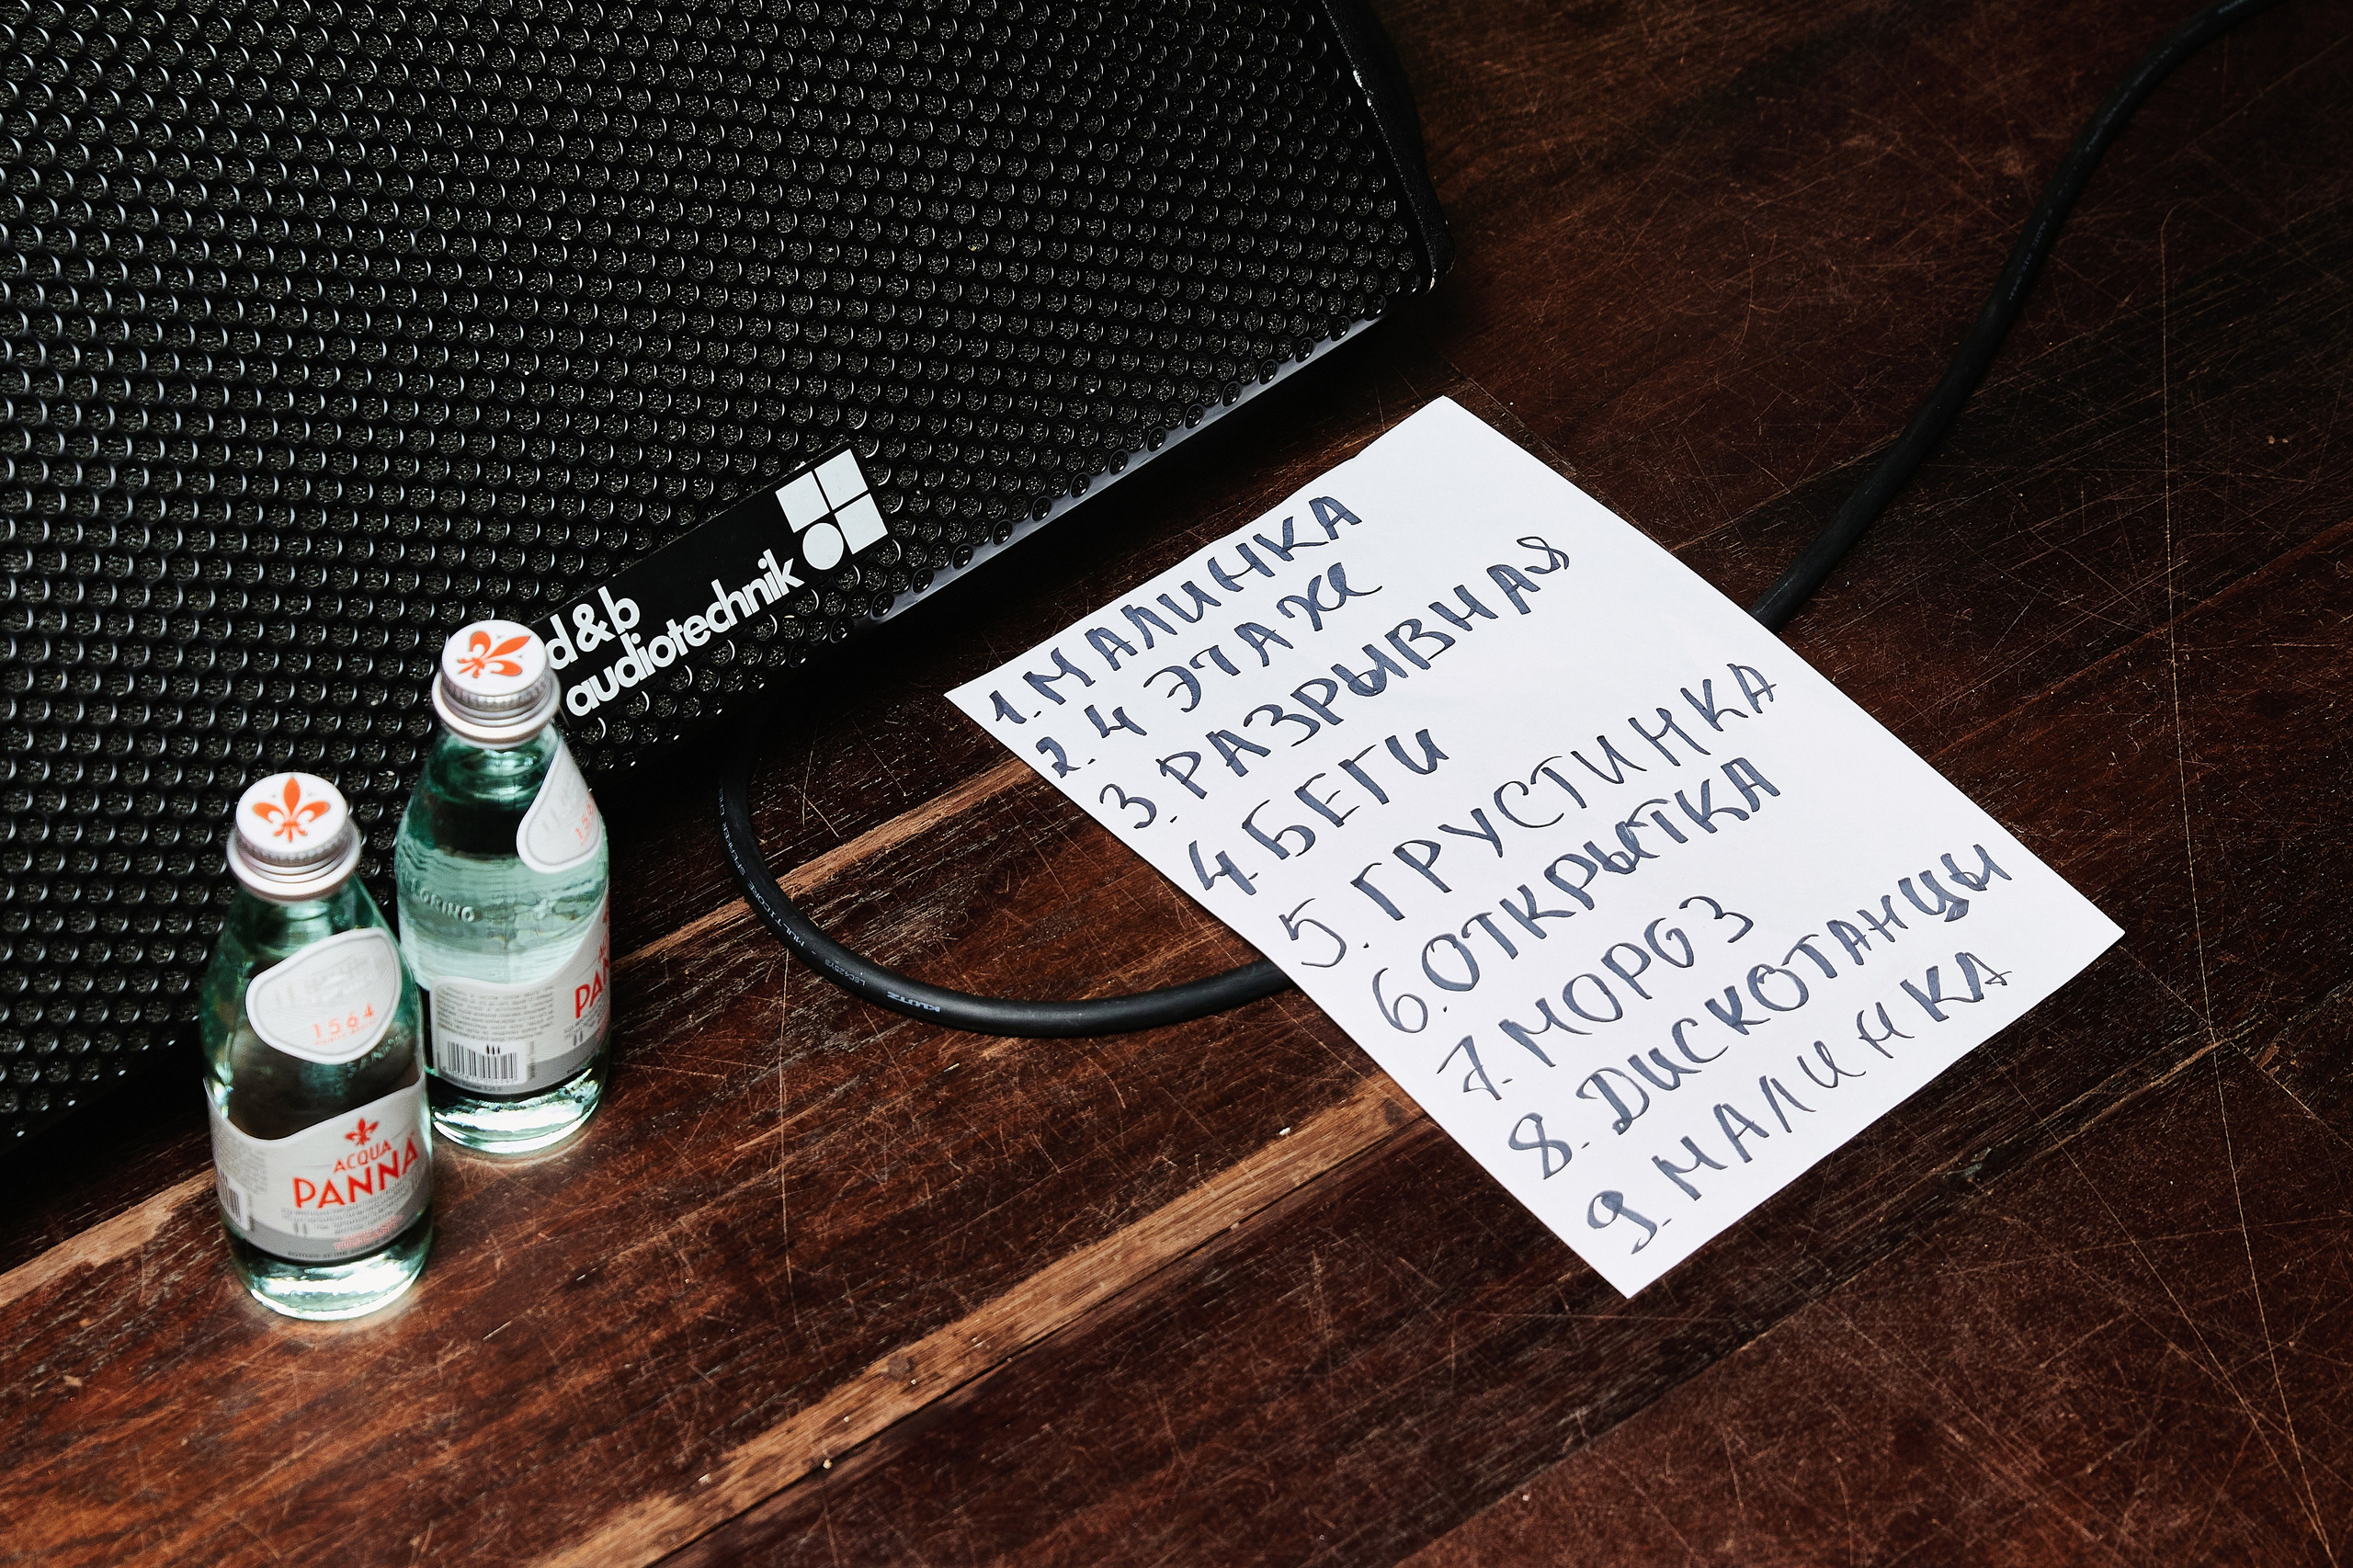 d&b
audiotechnik
1. МАЛИНКА
2. 4 ЭТАЖ
3. РАЗРЫВНАЯ
4 БЕГИ
5. ГРУСТИНКА
6. ОТКРЫТКА
7. МОРОЗ
8. ДИСКОТАНЦЫ
9. МАЛИНКА
1564
ACQUA
PANNA
KLOTZ